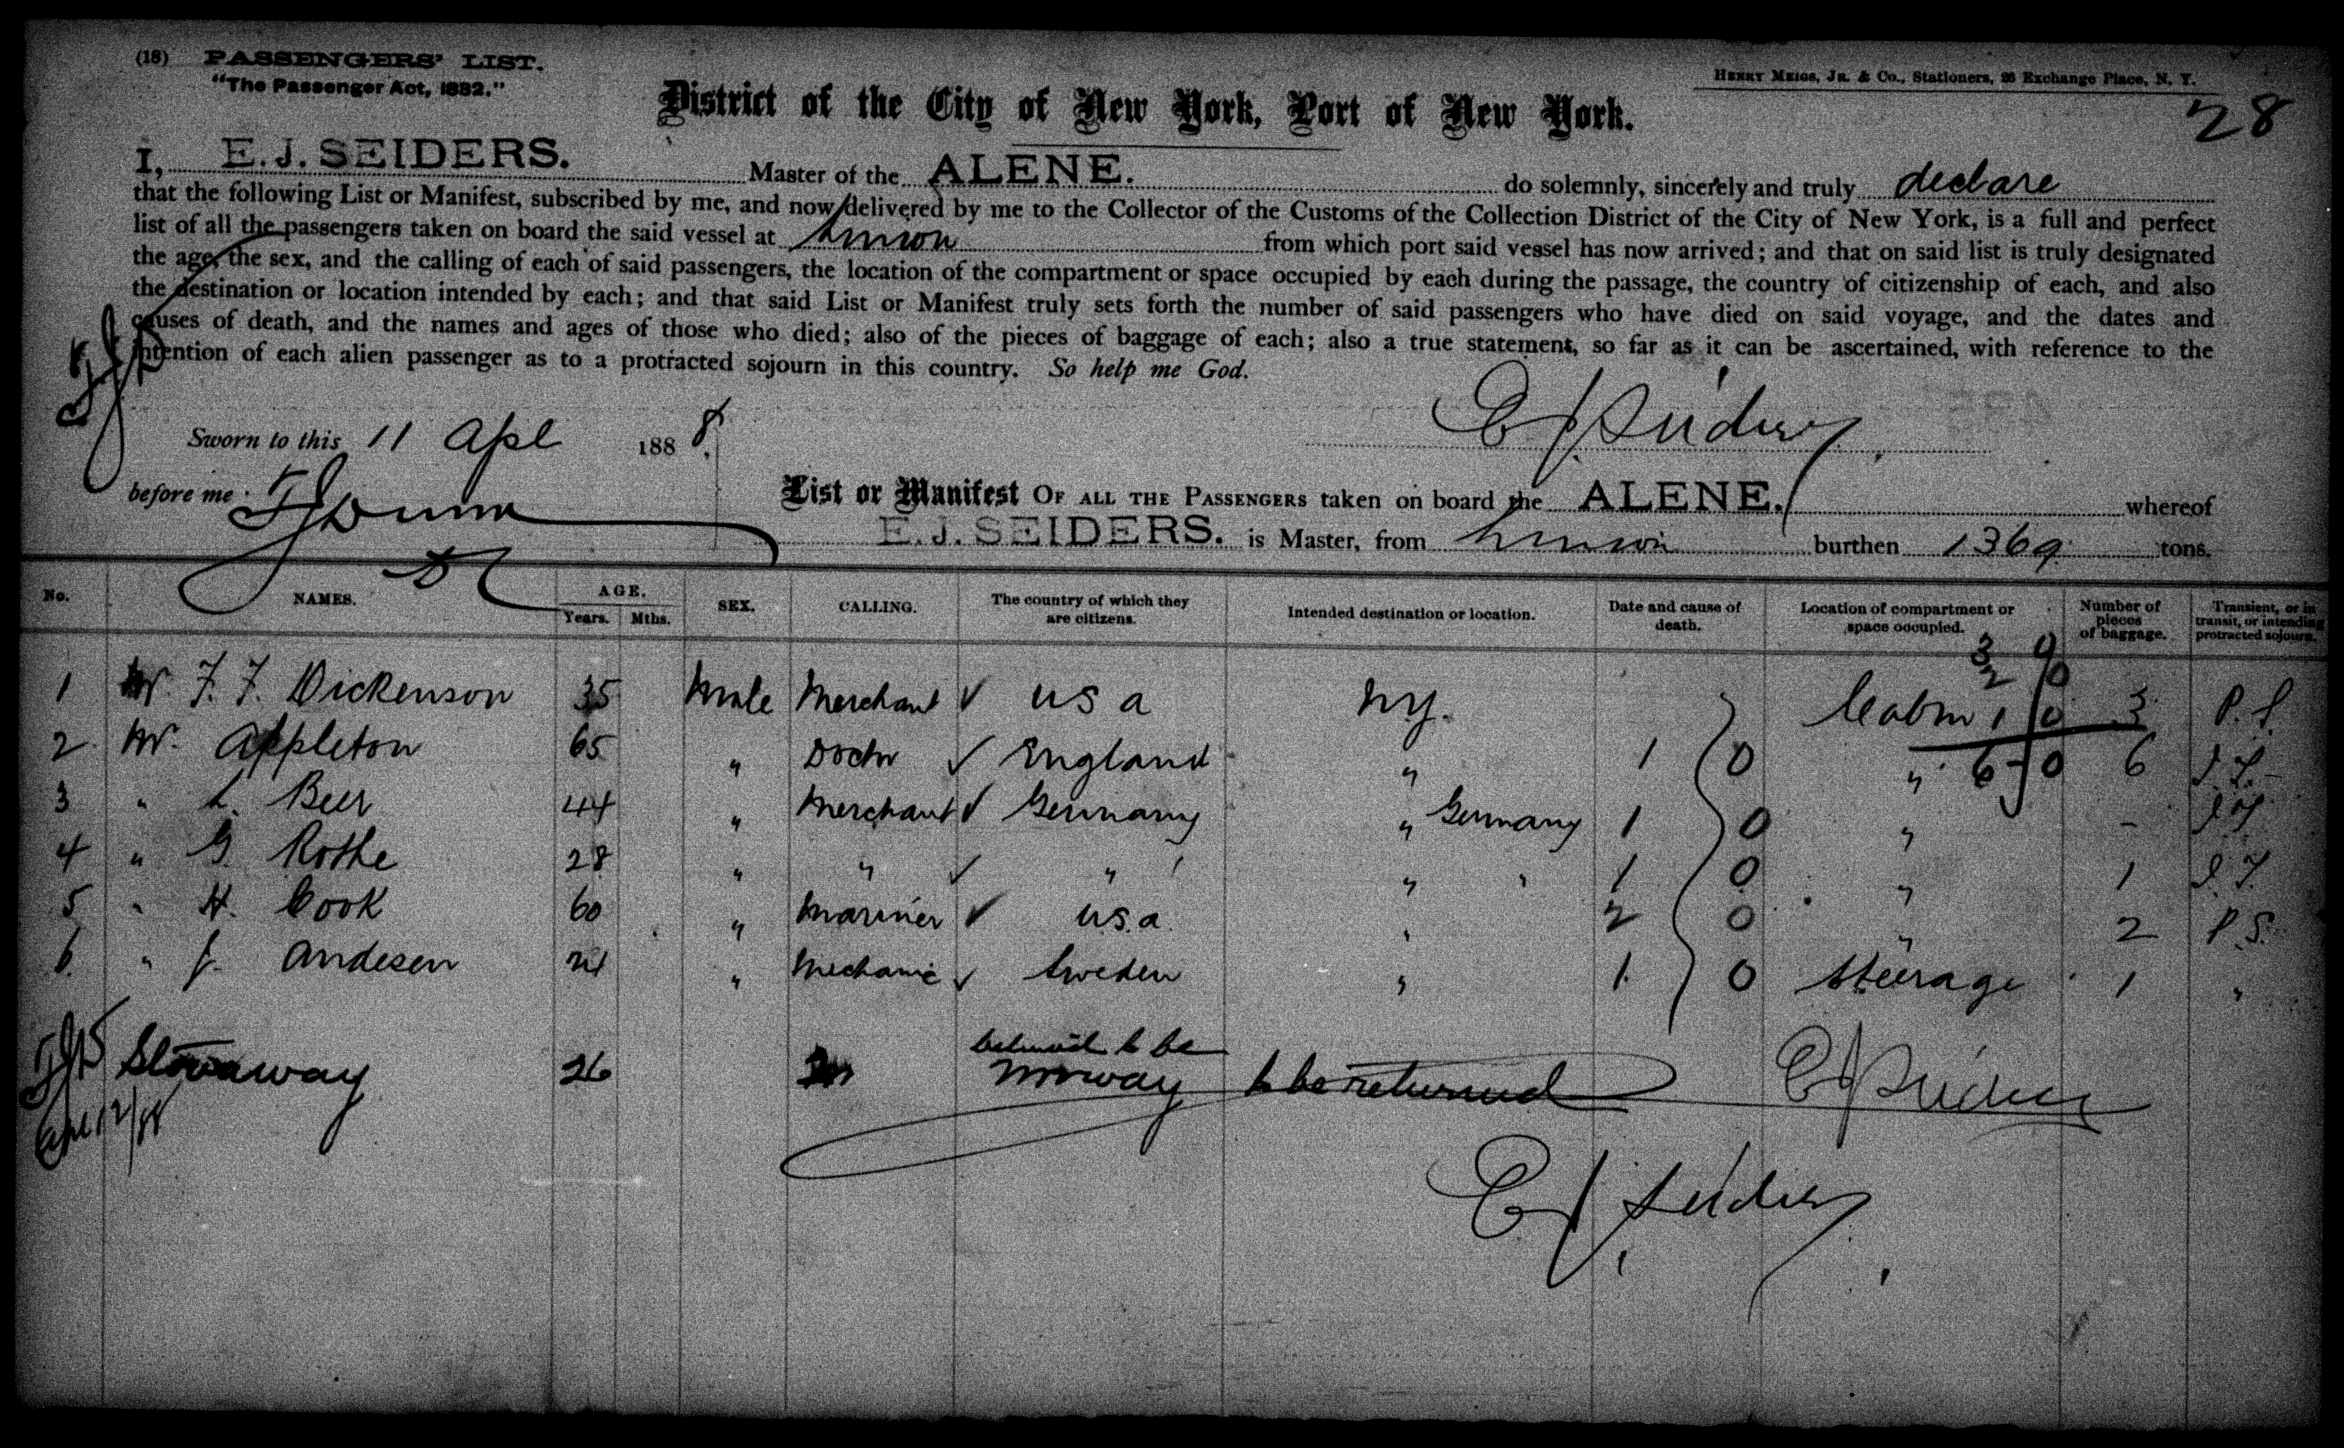 (18) PASSENGERS' LIST.
"The Passenger Act, 1882."
HENRY MEIGS, JR. & CO., Stationers, 26 Exchange Place, N. Y.
28
District of the City of New York, Port of New York.
I, E. J. SEIDERS. Master of the ALENE. do solemnly, sincerely and truly declare
that the following List or Manifest, subscribed by me, and now delivered by me to the Collector of the Customs of the Collection District of the City of New York, is a full and perfect
list of all the passengers taken on board the said vessel at from which port said vessel has now arrived; and that on said list is truly designated
the age, the sex, and the calling of each of said passengers, the location of the compartment or space occupied by each during the passage, the country of citizenship of each, and also
the destination or location intended by each; and that said List or Manifest truly sets forth the number of said passengers who have died on said voyage, and the dates and
causes of death, and the names and ages of those who died; also of the pieces of baggage of each; also a true statement, so far as it can be ascertained, with reference to the
intention of each alien passenger as to a protracted sojourn in this country. So help me God.
E J Seiders
Sworn to this 11 Apl 1888.
before me
List or Manifest OF ALL THE PASSENGERS taken on board the ALENE. whereof
E. J. SEIDERS. is Master, from burthen 1369 tons.
No. NAMES. AGE. Years. Mths. SEX. CALLING. The country of which they are citizens. Intended destination or location. Date and cause of death. Location of compartment or space occupied. Number of pieces of baggage. Transient, or in transit, or intending protracted sojourn.
1 Mr. F. F. Dickenson 35 Male Merchant ✓ U S A N.Y. Cabin 3 P. S.
2 Mr. Appleton 65 " Doctor ✓ England " 1 0 " 6 - 0 6
3 " L. Beer 44 " Merchant ✓ Germany " Germany 1 0 " - I. T.
4 " G. Rothe 28 " " ✓ " " " 1 0 " 1 I. T.
5 " H. Cook 60 " Mariner ✓ U.S.A. " 2 0 " 2 P. S.
6. " J. Andesen 21 " Mechanic ✓ Sweden " 1 0 Steerage 1 "
believed to be
Stowaway 26 Norway to be returned E J Seiders
Apl 12/88
E J Seiders